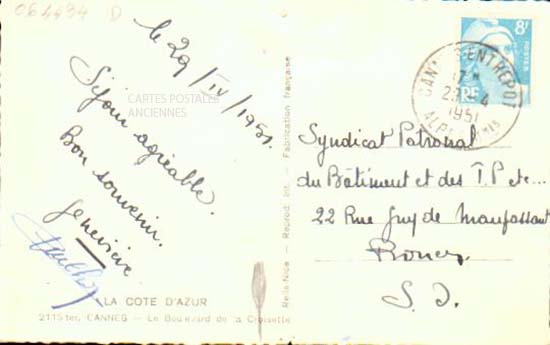 064494 D
le 29/IV/1951.
Séjour agréable.
Bon souvenir.
Geneviève
CARTES POSTALES
ANCIENNES
LA COTE D'AZUR
2115 ter. CANNES - Le Boulevard de la Croisette
Rella-Nice - Reprod. Int. - Fabrication française
8F
POSTES
CANNES-ENTREPOT
1951
Syndicat Patronal
du Bâtiment et des T.P etc...
22 Rue Guy de Maupassant
Rouen
S. I.